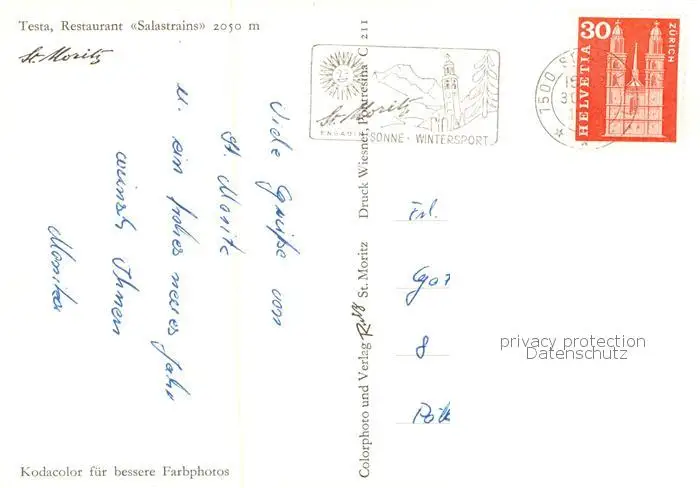 Testa, Restaurant «Salastrains» 2050 m
St. Moritz
Viele Grüße von
St. Moritz
u. ein frohes neues Jahr
wünscht Ihnen
Monika
Kodacolor für bessere Farbphotos
Colorphoto und Verlag St. Moritz Druck Wiesner, Pontresina C 211
St. Moritz
ENGADIN
SONNE · WINTERSPORT
HELVETIA
30
ZÜRICH
Frl.
8
privacy protection
Datenschutz